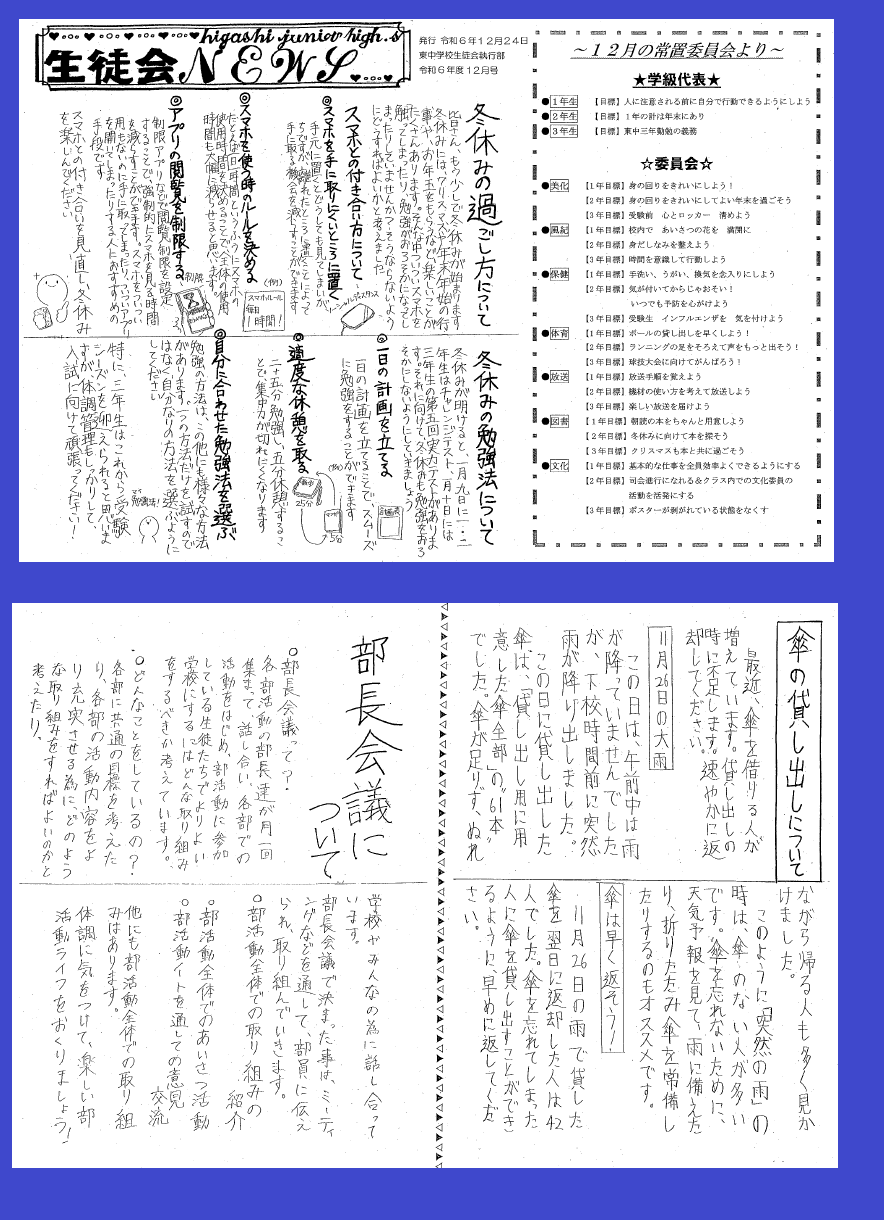 higashi junior high.s
生徒会NEWS
発行 令和６年１２月２４日
東中学校生徒会執行部
令和６年度１２月号
冬休みの過ごし方について
皆さん、もう少しで冬休みが始まります。
冬休みには、クリスマスや年末年始の行
事や、お年玉をもらうなど楽しいことが
たくさんあります。そんな中ついついスマホを
触ってしまったり、勉強がおろそかになってし
まったりしていませんか？そうならないよう
にどうすればよいかを考えました。
スマホとの付き合い方について
◎スマホを手に取りにくいところに置く
手元に置くとどうしても見てしまいが
ちですが、離れたところに置くことによって
手に取る機会を減らすことができます。
ソーシャルディスタンス
◎スマホを使う時のルールを決める
だとえば毎日一時間というふうにスマホの
使用時間を決めることで、全体の使用
時間も大幅に減らせると思います。
(例)
スマホルール
毎日
1時間!
◎アプリの閲覧を制限する
制限アプリなどで閲覧制限を設定
することで、強制的にスマホを見る時間
を減らすことができます。スマホをついつい
用もないのに手に取ってしまったり、ついついアプリ
を開いてしまったりする人におすすめの
手段です。
制限
スマホとの付き合いを見直し、冬休み
を楽しんでください。
冬休みの勉強法について
冬休みが明けると、一月九日に一・二
年生はチャレンジテスト、一月十日には
三年生の第五回実力テストがありま
す。それに向けて、冬休みも勉強をおろ
そかにしないようにしていきましょう。
◎一日の計画を立てる
一日の計画を立てることで、スムーズ
に勉強をすることができます。
計画表
◎適度な休憩を取る
二十五分勉強し、五分休憩するこ
とで集中力が切れにくくなります。
(例)
25分
5分
◎自分に合わせた勉強法を選ぶ
勉強の方法は、この他にも様々な方法
があります。一つの方法だけを試すので
はなく自分なりの方法を選ぶように
してください。
勉強法！
特に、三年生はこれから受験
シーズンを迎えられると思いま
すが、体調管理もしっかりして、
入試に向けて頑張ってください！
～１２月の常置委員会より～
★学級代表★
●１年生 【目標】人に注意される前に自分で行動できるようにしよう
●２年生 【目標】１年の計は年末にあり
●３年生 【目標】東中三年勤勉の義務
☆委員会☆
●美化 【１年目標】身の回りをきれいにしよう！
【２年目標】身の回りをきれいにしてよい年末を過ごそう
【３年目標】受験前　心とロッカー　清めよう
●風紀 【１年目標】校内で　あいさつの花を　満開に
【２年目標】身だしなみを整えよう
【３年目標】時間を意識して行動しよう
●保健 【１年目標】手洗い、うがい、換気を念入りにしよう
【２年目標】気が付いてからじゃおそい！
いつでも予防を心がけよう
【３年目標】受験生　インフルエンザを　気を付けよう
●体育 【１年目標】ボールの貸し出しを早くしよう！
【２年目標】ランニングの足をそろえて声をもっと出そう！
【３年目標】球技大会に向けてがんばろう！
●放送 【１年目標】放送手順を覚えよう
【２年目標】機材の使い方を考えて放送しよう
【３年目標】楽しい放送を届けよう
●図書 【１年目標】朝読の本をちゃんと用意しよう
【２年目標】冬休みに向けて本を探そう
【３年目標】クリスマスも本と共に過ごそう
●文化 【１年目標】基本的な仕事を全員効率よくできるようにする
【２年目標】司会進行になれる＆クラス内での文化委員の
活動を活発にする
【３年目標】ポスターが剥がれている状態をなくす
傘の貸し出しについて
最近、傘を借りる人が
増えています。貸し出しの
時に不足します。速やかに返
却してください。
11月26日の大雨
この日は、午前中は雨
が降っていませんでした
が、下校時間前に突然
雨が降り出しました。
この日に貸し出した
傘は、「貸し出し用に用
意した傘全部」の"61本"
でした。傘が足りず、ぬれ
ながら帰る人も多く見か
けました。
このように「突然の雨」の
時は、傘のない人が多い
です。傘を忘れないために、
天気予報を見て、雨に備えた
り、折りたたみ傘を常備し
たりするのもオススメです。
傘は早く返そう！
11月26日の雨で貸した
傘を翌日に返却した人は42
人でした。傘を忘れてしまった
人に傘を貸し出すことができ
るように、早めに返してくだ
さい。
部長会議について
○部長会議って？
各部活動の部長達が月一回
集まって話し合い、各部での
活動をはじめ、部活動に参加
している生徒たちでよりよい
学校にするにはどんな取り組み
をするべきか考えています。
○どんなことをしているの？
各部に共通の目標を考えた
り、各部の活動内容をよ
り充実させる為に、どのよう
な取り組みをすればよいのかと
考えたり、
学校やみんなの為に話し合って
います。
部長会議で決まった事は、ミーティ
ングなどを通して、部員に伝え
られ、取り組んでいきます。
○部活動全体での取り組みの
紹介
○部活動全体でのあいさつ活動
○部活動イトを通しての意見
交流
他にも部活動全体での取り組
みはあります。
体調に気をつけて、楽しい部
活動ライフをおくりましょう！